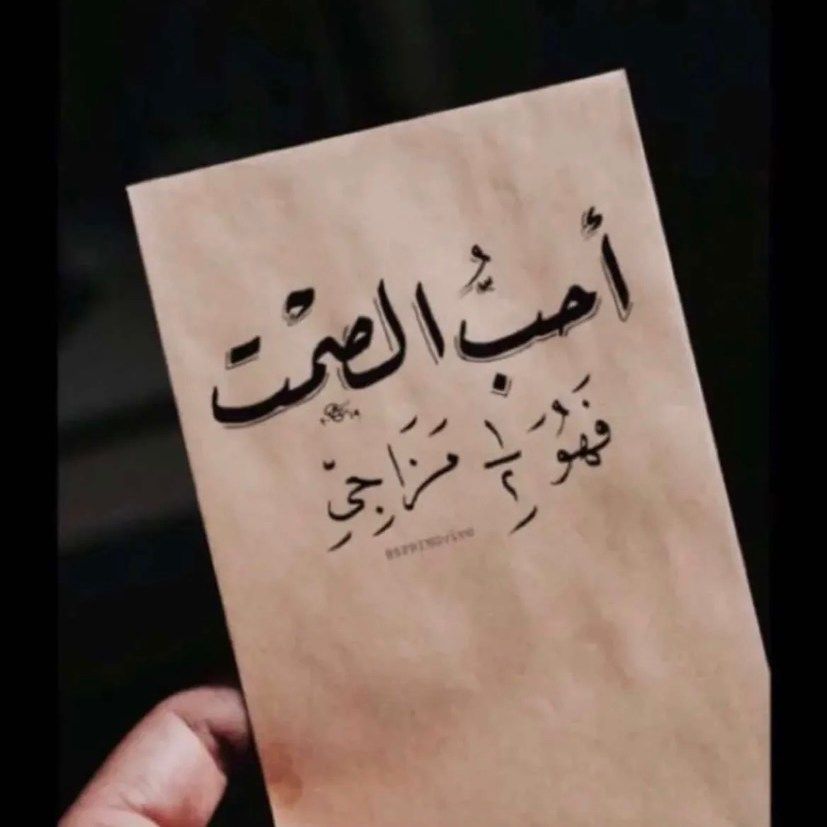 أحبُّ الصمْت
فَهُوَ ١/٢ مَزَاجِيِّ